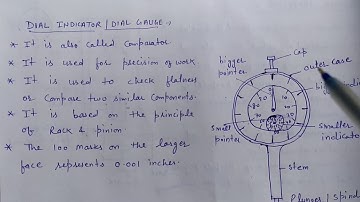 DIAL INDICATOR / DIAL GAUGE :
* It is also called Comparator
* It is used for precision of work.
* It is used to check flatness
or compare two similar components.
* It is based on the principle
of Rack & pinion.
* The 100 marks on the larger
face represents 0.001 inches.
bigger
pointer
cap
outer case
small
pointer
smaller
indicator
stem
Plunger /